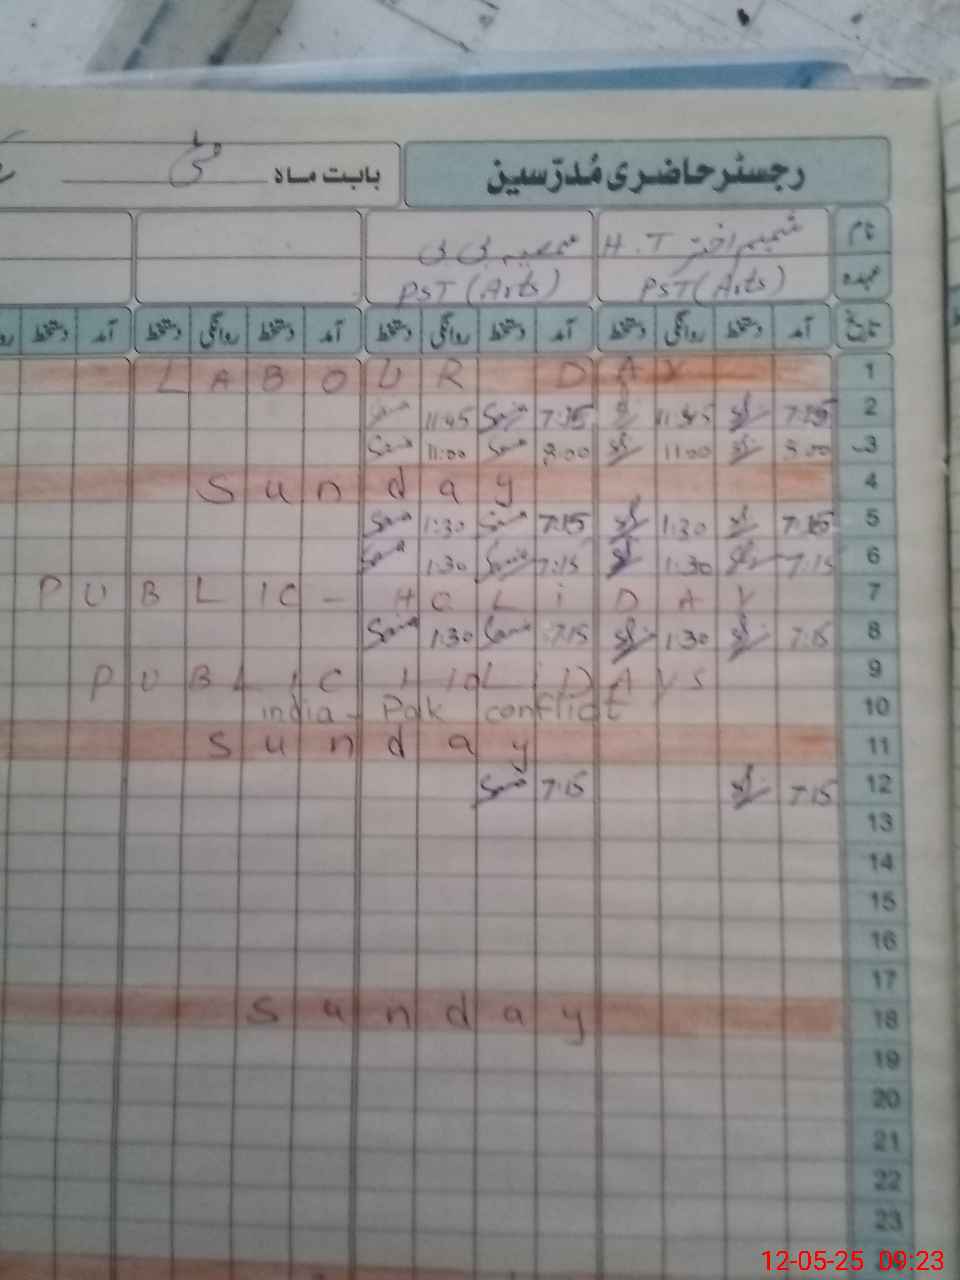 رجسٹر حاضری مُدرّسین
بابت ماہ مئی
نام شمیم اختر H.T
عہدہ PST (Arts) PST (Arts)
تاریخ آمد دستخط روانگی دستخط آمد دستخط روانگی دستخط آمد دستخط روانگی دستخط آمد دستخط
1 LABOUR DAY
2 7:25 11:45 7:15 11:45
3 8:00 11:00 8:00 11:00
4 Sunday
5 7:15 1:30 7:15 1:30
6 7:15 1:30 7:15 1:30
7 PUBLIC - HOLIDAY
8 7:15 1:30 7:15 1:30
9 PUBLIC HOLIDAYS
10 india - Pak conflict
11 Sunday
12 7:15 7:15
13
14
15
16
17
18 Sunday
19
20
21
22
23
12-05-25 09:23